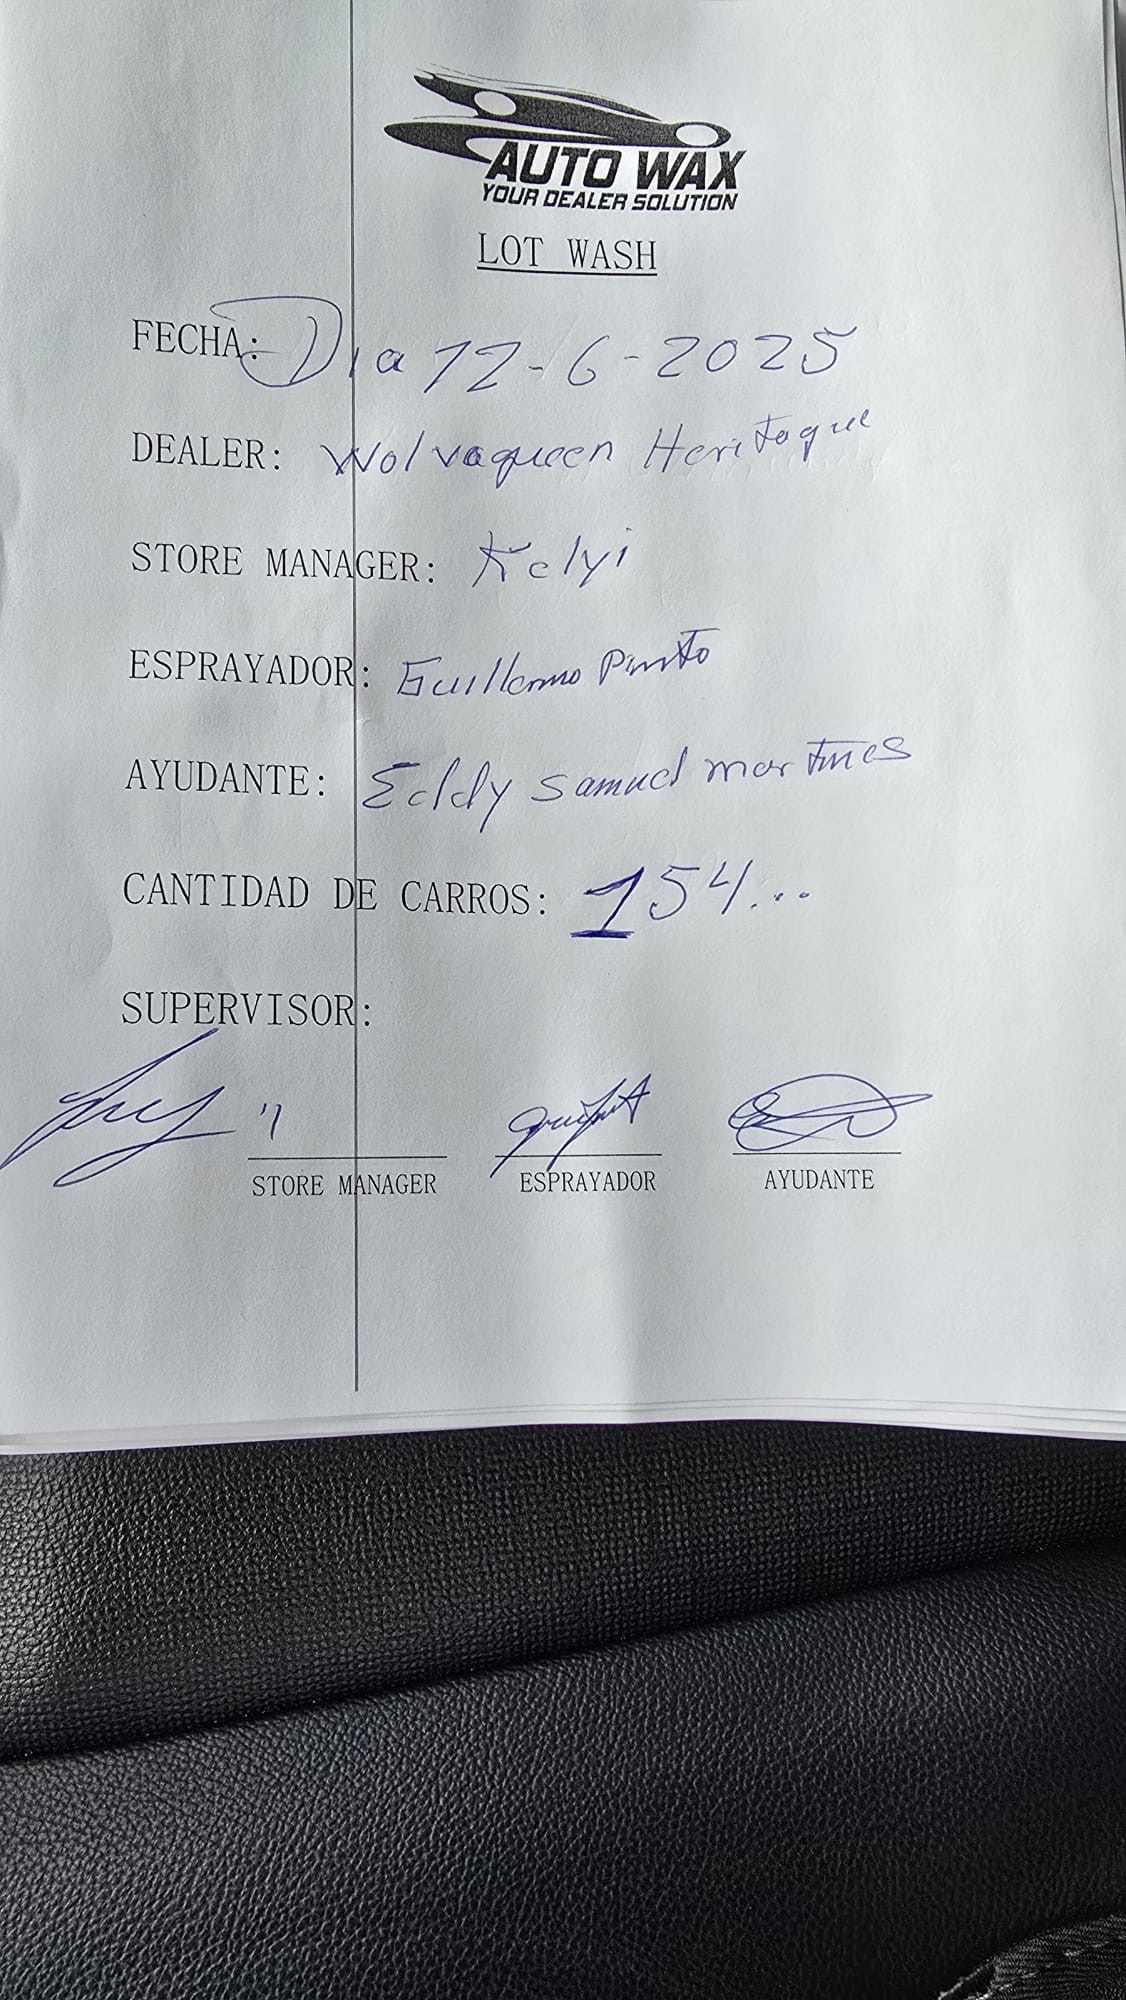 AUTO WAX
YOUR DEALER SOLUTION
LOT WASH
FECHA: Dia 12-6-2025
DEALER: Wolvaqueen Heritaque
STORE MANAGER: Kelyi
ESPRAYADOR: Guillermo Pinto
AYUDANTE: Eddy Samuel martines
CANTIDAD DE CARROS: 154...
SUPERVISOR:
STORE MANAGER ESPRAYADOR AYUDANTE